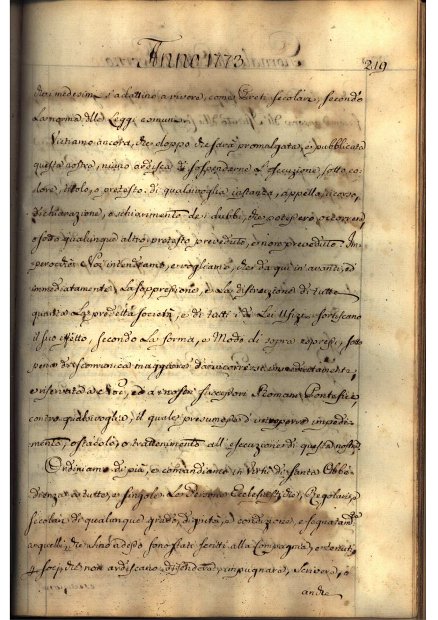 Anno 1773.
219
dieri medesimi s'adattino a vivere, come Preti secolari, secondo
la norma delle Leggi comuni.
Vietiamo ancora, che doppo che sarà promulgata, e pubblicata
questa nostra, niuno ardisca di sospenderne l'esecuzione, sotto co-
lore, titolo, o pretesto di qualsivoglia istanza, appello, ricorso,
dichiarazione, o schiarimento de i dubbj, che potessero occorrere
o sotto qualunque altro pretesto preveduto, e non preveduto. Im-
perocchè Noi intendiamo, e vogliamo, che da qui in avanti, ed
immediatamente la soppressione, e la distruzione di tutta
quanta la predetta Società, e di tutti i di Lei Ufizj sortiscano
il suo effetto, secondo la forma, e Modo di sopra espressi, sotto
pena di scomunica maggiore da incorrersi immediatamente,
e riservata a Noi, ed a' nostri successori Romani Pontefici
contro qualsivoglia, il quale presumesse d'interporre impedi-
mento, ostacolo, o trattenimento all'esecuzione di questa nostra.
Ordiniamo di più, e comandiamo in Virtù di Santa Obbe-
dienza a tutte, e singole le Persone Ecclesiastiche, Regolari, e
Secolari di qualunque grado, dignità, e condizione, e segnatam.
a quelli, che sino adesso sono stati scritti alla Compagnia, e tenuti
p soci, che non ardiscano difendere, impugnare, scrivere, o
anche